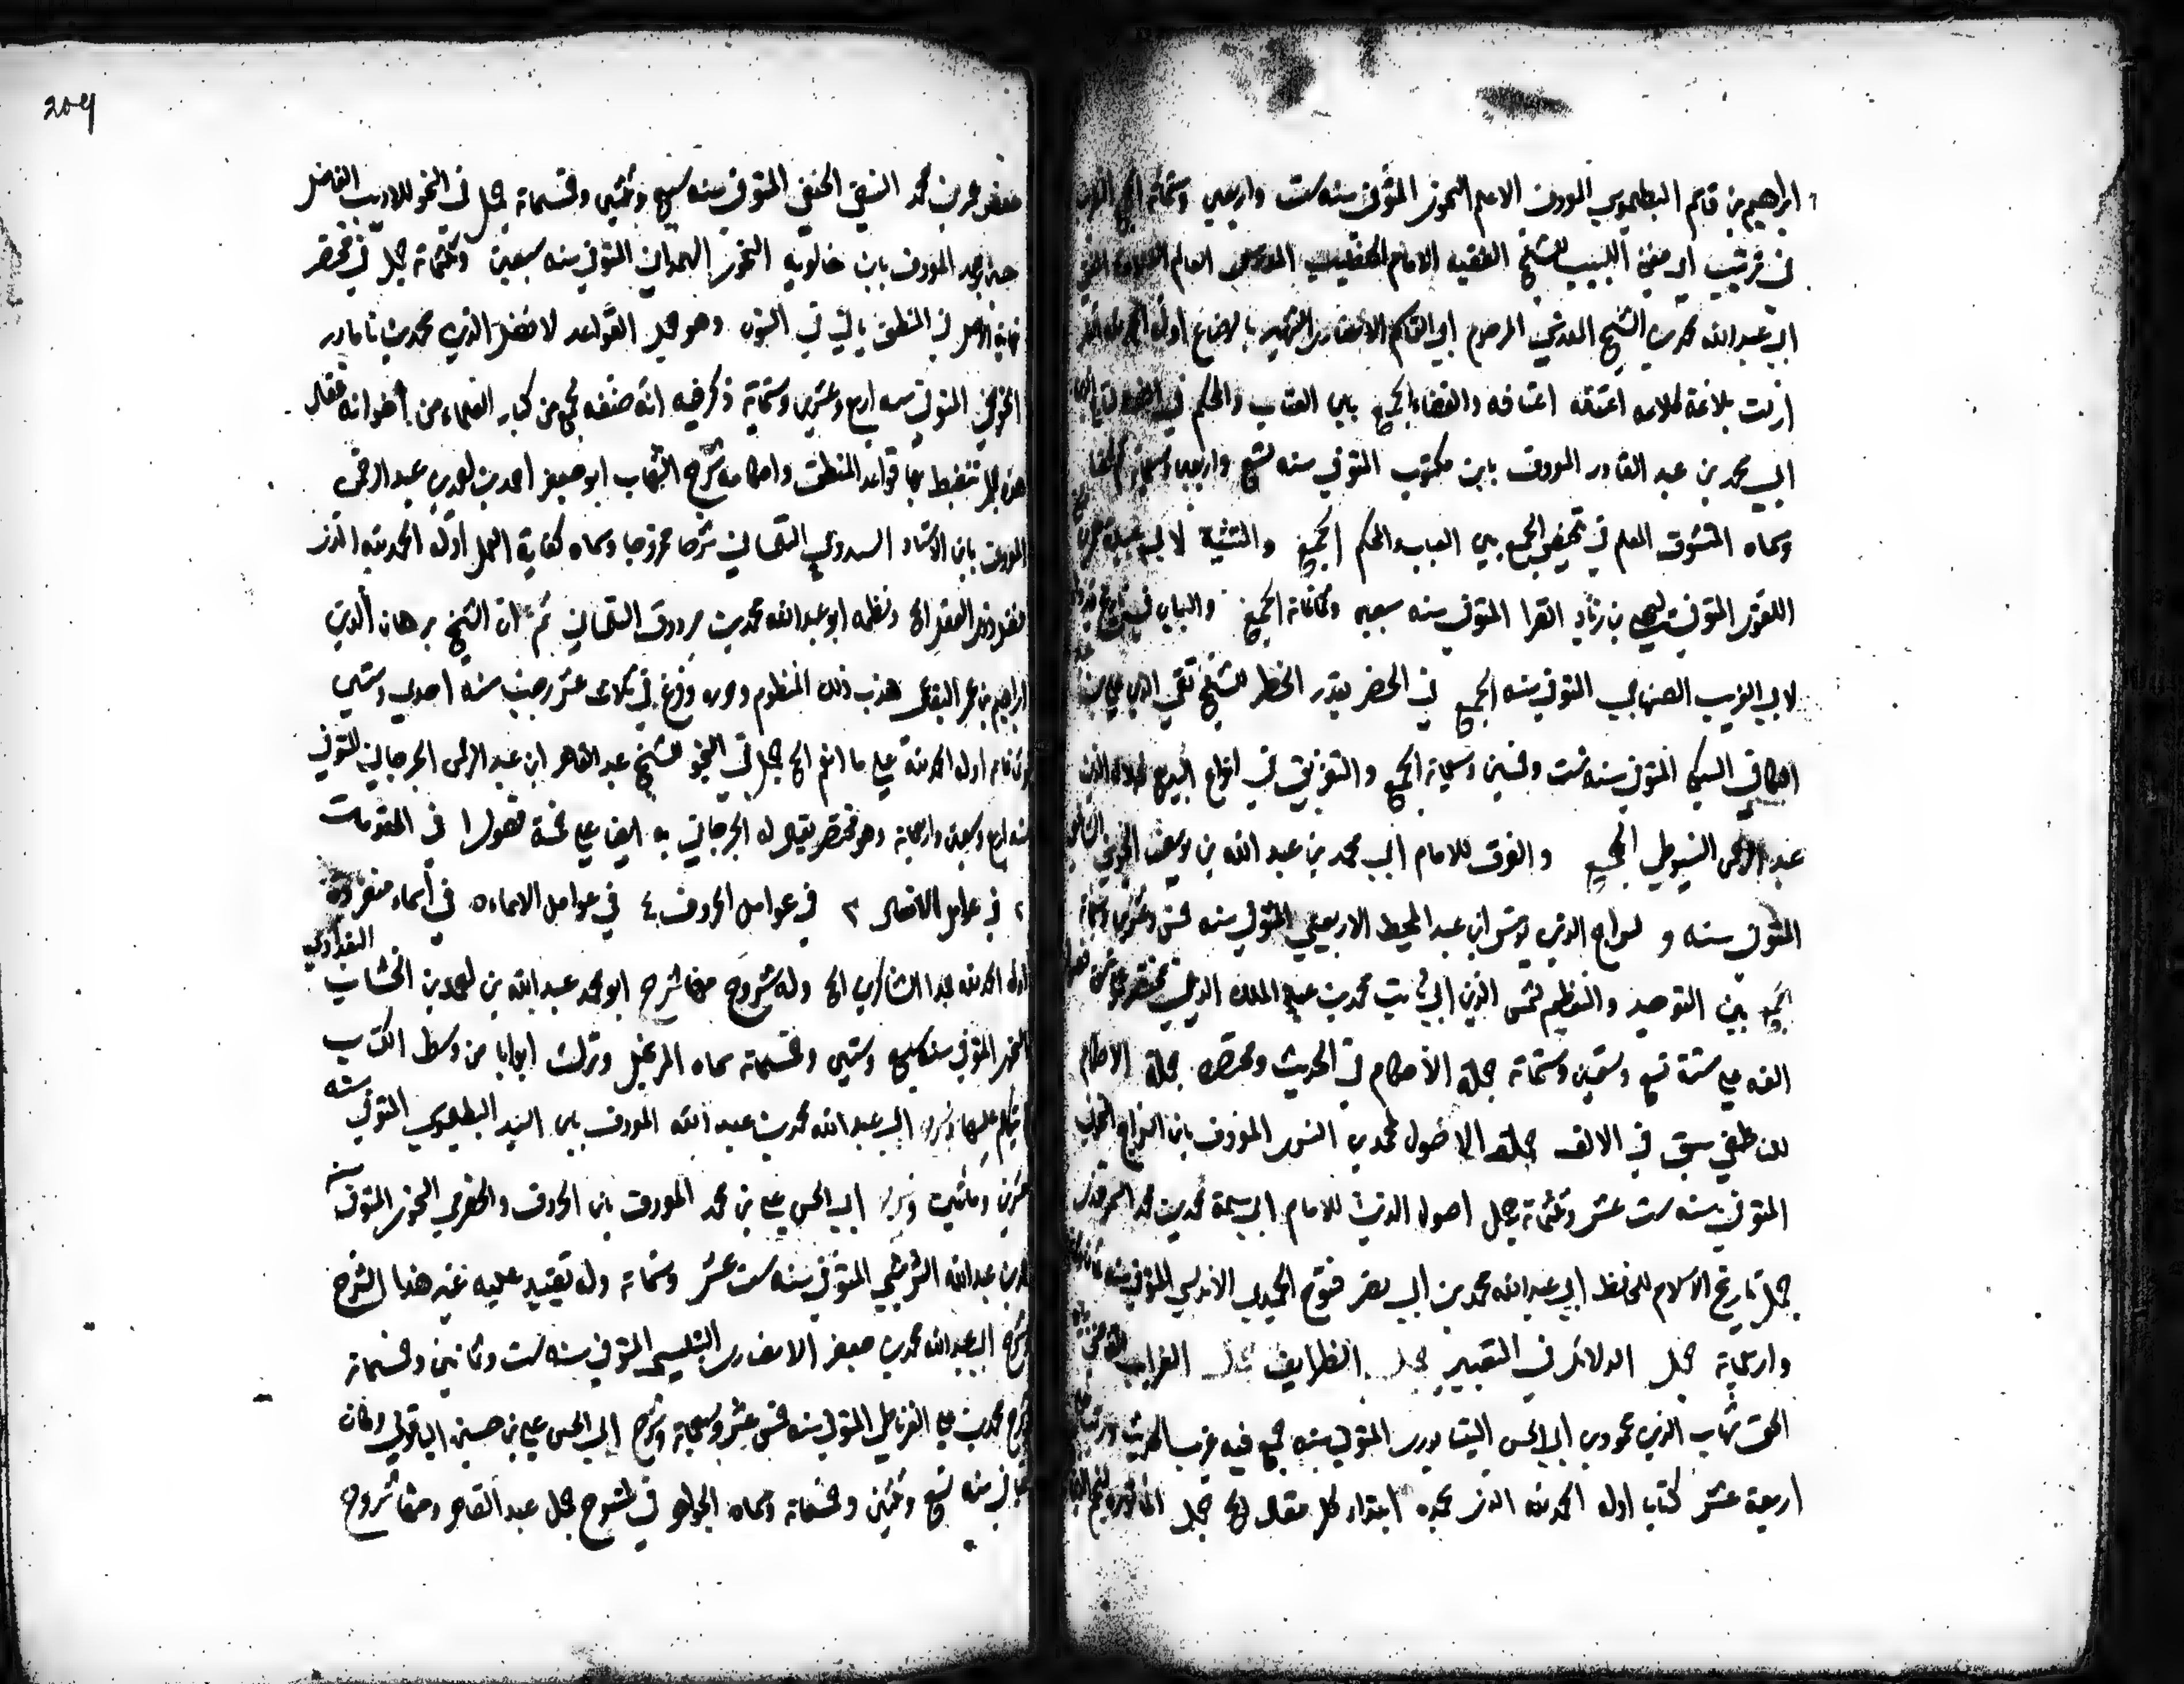 ابراهيم بن قاسم البطليوسي المعروف الاعلم النحوي المتوفى سنه ست واربعين وستمائة الجمع الغريب
في ترتيب آي مغني اللبيب للشيخ الفقيه الامام الخطيب المدرس العالم
ابي عبد الله محمد بن الشيخ المدعي المرحوم ابي القاسم الانصاري الشهير بالرصاع اوله الحمد لله الذي
ارنت بلاغة كلامه اعتقه اعتافه والفضاء الجمع بين العباب والمحكم في اللغة
ابي محمد بن عبد القادر المعروف بابن مكتوب المتوفى سنه تسع واربعين وسبعمائة
وسماه المشوف المعلم في تلخيص الجمع بين العباب والمحكم الجمع والتثنية لابي عبيدة
اللغوي المتوفى سنه يحيى بن زياد الفرا المتوفى سنه سبعين وثمانمائة الجمع والبيان في تاريخ
لابي الغريب الصنهاجي المتوفى سنه الجمع في الحضر بعذر الخطر للشيخ تقي الدين علي بن
الكافي السبكي المتوفى سنه ست وخمسين وسبعمائة الجمع والتفريق في انواع البديع لجلال الدين
عبد الرحمن السيوطي الجمع والفرق للامام ابي محمد بن عبد الله بن يوسف الجويني الشافعي
المتوفى سنه و لسراج الدين يونس ابن عبد المجيد الارمنتي المتوفى سنه خمس وعشرين وسبعمائة
الجمع بين التوحيد والتعظيم لشمس الدين ابي ثابت محمد بن عبد الملك الديلمي مختصر على ثمن فصول
الفه في سنة تسع وستين وستمائة جملة الأحكام في الحديث ومختصره جملة الاحكام
للناطفي سبق في الالف جمل الاصول لمحمد بن السري المعروف بابن السراج النحوي
المتوفى سنه ست عشر وثلثمائة جمل اصول الدين للامام ابي سلمة محمد بن محمد السمرقندي
جمل تاريخ الاسلام للحافظ ابي عبد الله محمد بن ابي نصر فتوح الحميدي الاندلسي المتوفى سنه ثمان
واربعمائة جمل الدلائل في التعبير جمل الطرايف جمل الغرايب للقاضي
الحق شهاب الدين محمود بن ابي الحسن النيسابوري المتوفى سنه جمع فيه غريب الحديث ورتب على
اربعة عشر كتاب اوله الحمد لله الذي بحمده ابتداء كل مقال الخ جمل المأثورة لنجم الدين ابي
حفص عمر بن محمد النسفي الحنفي المتوفى سنه سبع وثلثين وخمسمائة جمل في النحو للاديب الفاضل
حسين بن احمد المعروف بابن خالويه النحوي الهمداني المتوفى سنه سبعين وثلثمائة جمل في مختصر
نهاية الامل في المنطق يأتي في النون وهو جمل القواعد لافضل الدين محمد بن نامادر
الخونجي المتوفى سنه اربع وعشرين وستمائة ذكر فيه انه صنفه لجمع من كبار العلماء من اخوانه فقال
هذه جمل تنضبط بها قواعد المنطق واحكامه شرح الشهاب ابو جعفر احمد بن احمد بن عبد الرحمن
المعروف بابن الاستاد السدومي التلمساني شرحا ممزوجا وسماه كفاية العمل اوله الحمد لله الذي
فضل ذوي العقل الخ ونظمه ابو عبد الله محمد بن مرزوق التلمساني ثم ان الشيخ برهان الدين
ابراهيم بن عمر البقاعي هذب ذلك المنظوم وحرره وفرغ في ثلاث عشر رجب سنه احدى وستين
وثمانمائة اوله الحمد لله على ما انعم الخ جمل في النحو للشيخ عبد القاهر ابن عبد الرحمن الجرجاني المتوفى
سنه اربع وسبعين واربعمائة وهو مختصر يقال له الجرجانية ايضا على خمسة فصول ا في المقدمات
٢ في عوامل الافعال ٣ في عوامل الحروف ٤ في عوامل الاسماء ٥ في أسماء منفردة
اوله الحمد لله حمد الشاكرين الخ وله شروح منها شرح ابو محمد عبد الله بن احمد بن الخشاب البغدادي
النحوي المتوفى سنه سبع وستين وخمسمائة سماه المرتجل وترك ابوابا من وسط الكتاب
ما تكلم عليها وشرح ابي عبد الله محمد بن عبد الله المعروف بابن السيد البطليوسي المتوفى سنه
عشرين ومائتين وشرح ابي الحسن علي بن محمد المعروف بابن الخروف والحضرمي النحوي المتوفى سنه
بن عبد الله الشريشي المتوفى سنه ست عشر وستمائة وله تقييد عليه غير هذا الشرح
وشرح ابي عبد الله محمد بن جعفر الانصاري البلنسي المتوفى سنه ست وثمانين وخمسمائة
وشرح محمد بن علي الغرناطي المتوفى سنه خمس عشر وسبعمائة وشرح ابي الحسن علي بن حسين الباقولي وكان
المتوفى سنه تسع وثلثين وخمسمائة وسماه الجواهر في شرح جمل عبد القاهر ومنها شروح
204